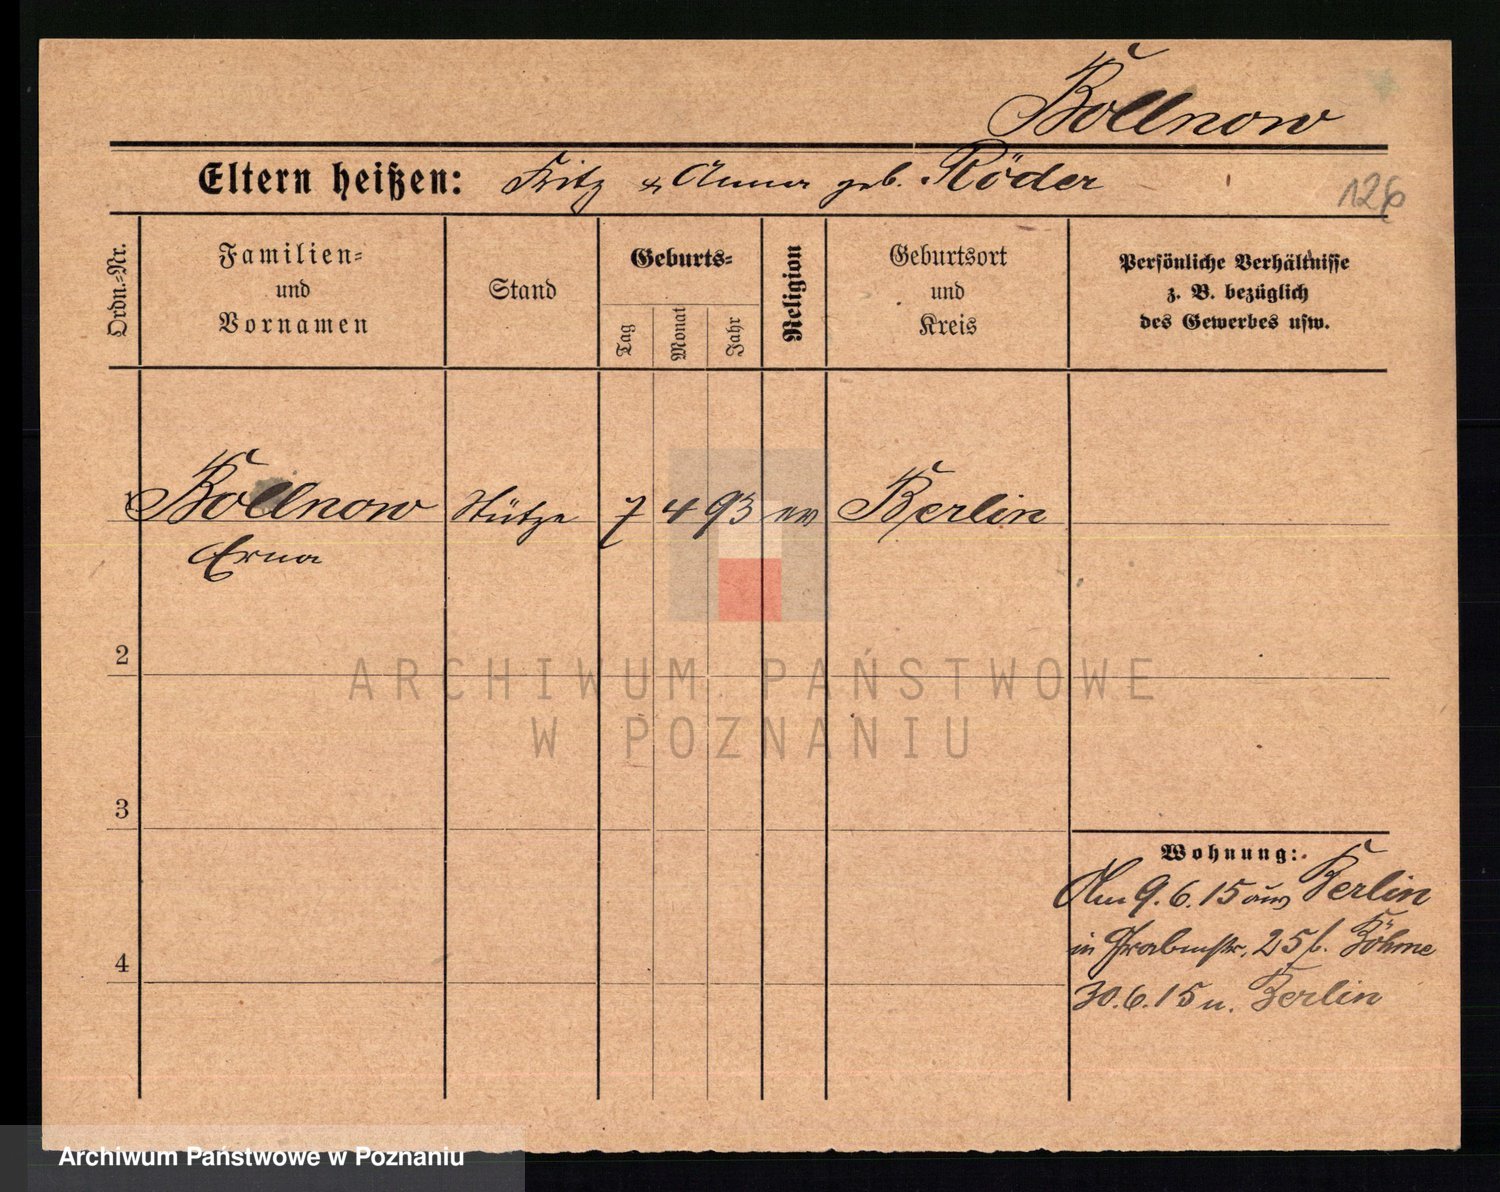 Bollnow
Eltern heißen: Fritz & Anna geb. Röder
126
Ordn.-Nr.
Familien-
und
Vornamen
Stand
Geburts-
Tag
Monat
Jahr
Religion
Geburtsort
und
Kreis
Persönliche Verhältnisse
z. B. bezüglich
des Gewerbes usw.
1 Bollnow Stütze 7 4 93 ev Berlin
Erna
2
ARCHIWUM PAŃSTWOWE
W POZNANIU
3
Wohnung:
Am 9.6.15 aus Berlin
in Grabenstr. 25 b. Böhme
4
30.6.15 n. Berlin
Archiwum Państwowe w Poznaniu